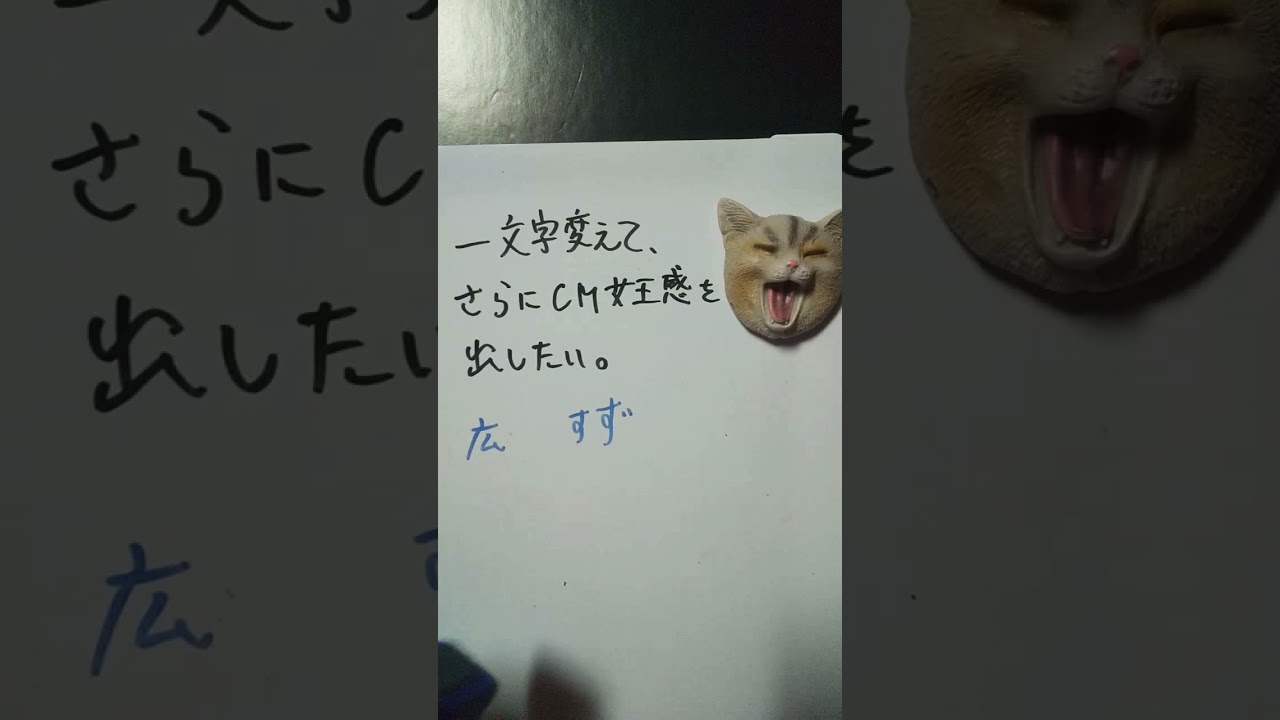 一文字変えて、
さらにCM女王感を
出したい。
広 すず